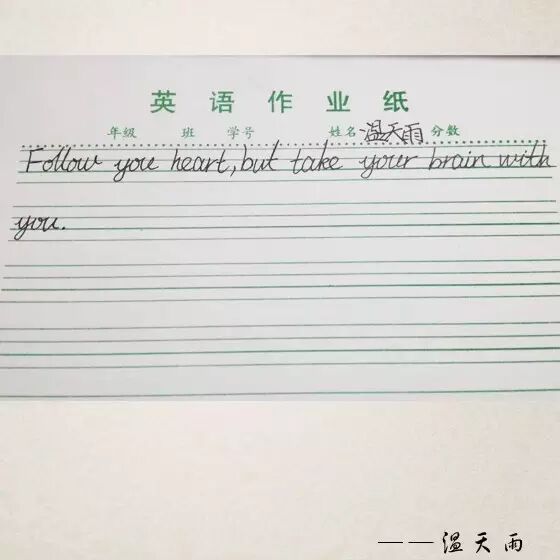 英语作业纸
年级 班 学号 姓名 温天雨 分数
Follow you heart, but take your brain with
you.
——温天雨